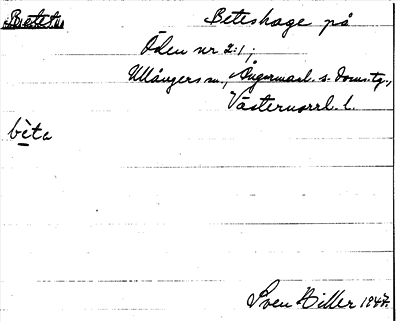 Betet Beteshage på
Öden nr 2:1;
Ullångers sn, Ångermanl. s. doms.tg.,
Västernorrl. l.
bèta
Sven Hiller 1947.